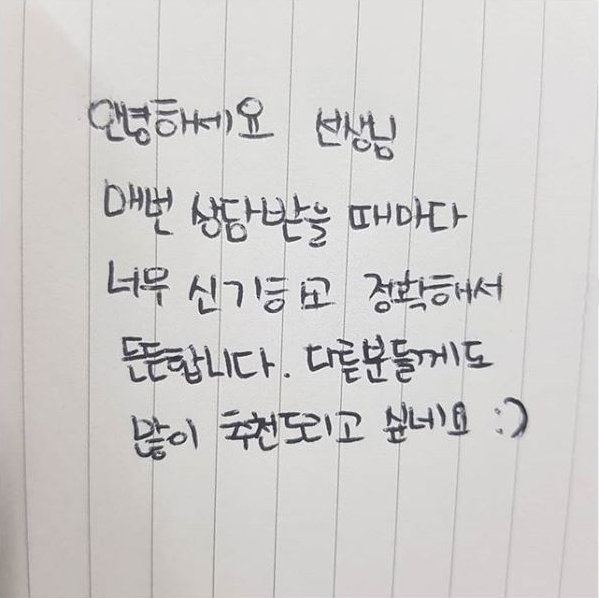 안녕하세요 선생님
매번 상담받을 때마다
너무 신기하고 정확해서
든든합니다. 다른분들께도
많이 추천드리고 싶네요 :)